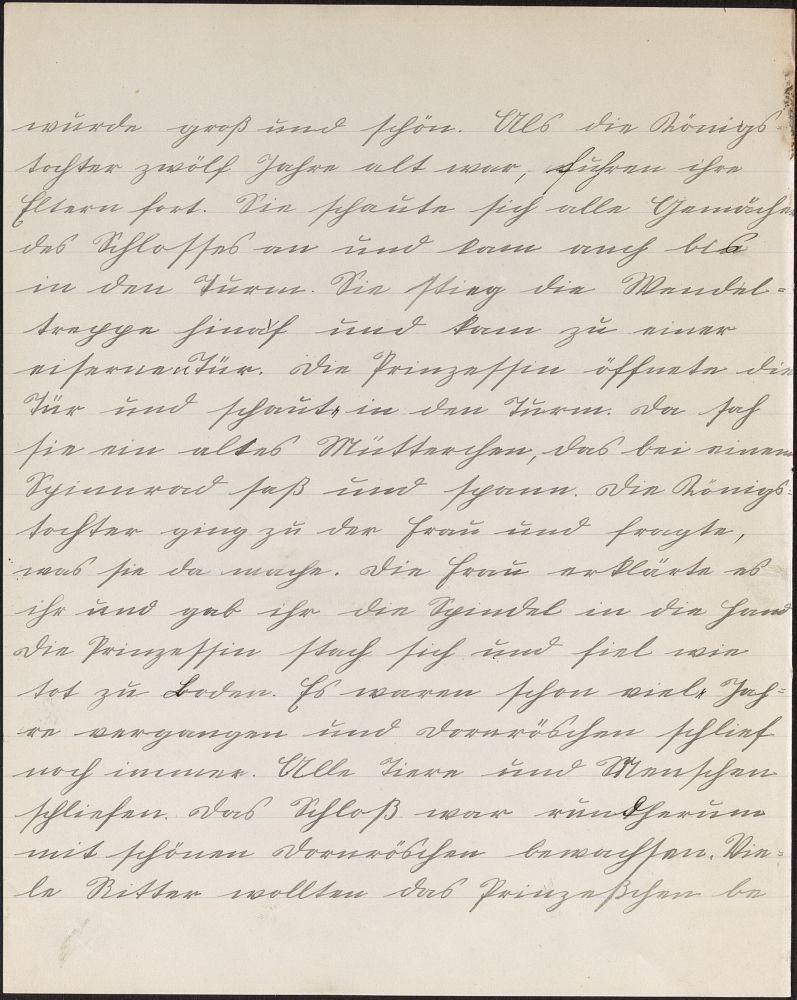 wurde groß und schön. Als die Königs-
tochter zwölf Jahre alt war, fuhren ihre
Eltern fort. Sie schaute sich alle Gemächer
des Schlosses an und kam auch bis
in den Turm. Sie stieg die Wendel-
treppe hinauf und kam zu einer
eisernen Tür. Die Prinzessin öffnete die
Tür und schaute in den Turm. Da sah
sie ein altes Mütterchen, das bei einem
Spinnrad saß und spann. Die Königs-
tochter ging zu der Frau und fragte,
was sie da mache. Die Frau erklärte es
ihr und gab ihr die Spindel in die Hand
Die Prinzessin stach sich und fiel wie
tot zu Boden. Es waren schon viele Jah-
re vergangen und Dornröschen schlief
noch immer. Alle Tiere und Menschen
schliefen. Das Schloß war rundherum
mit schönen Dornröschen bewachsen. Vie-
le Ritter wollten das Prinzeßchen be